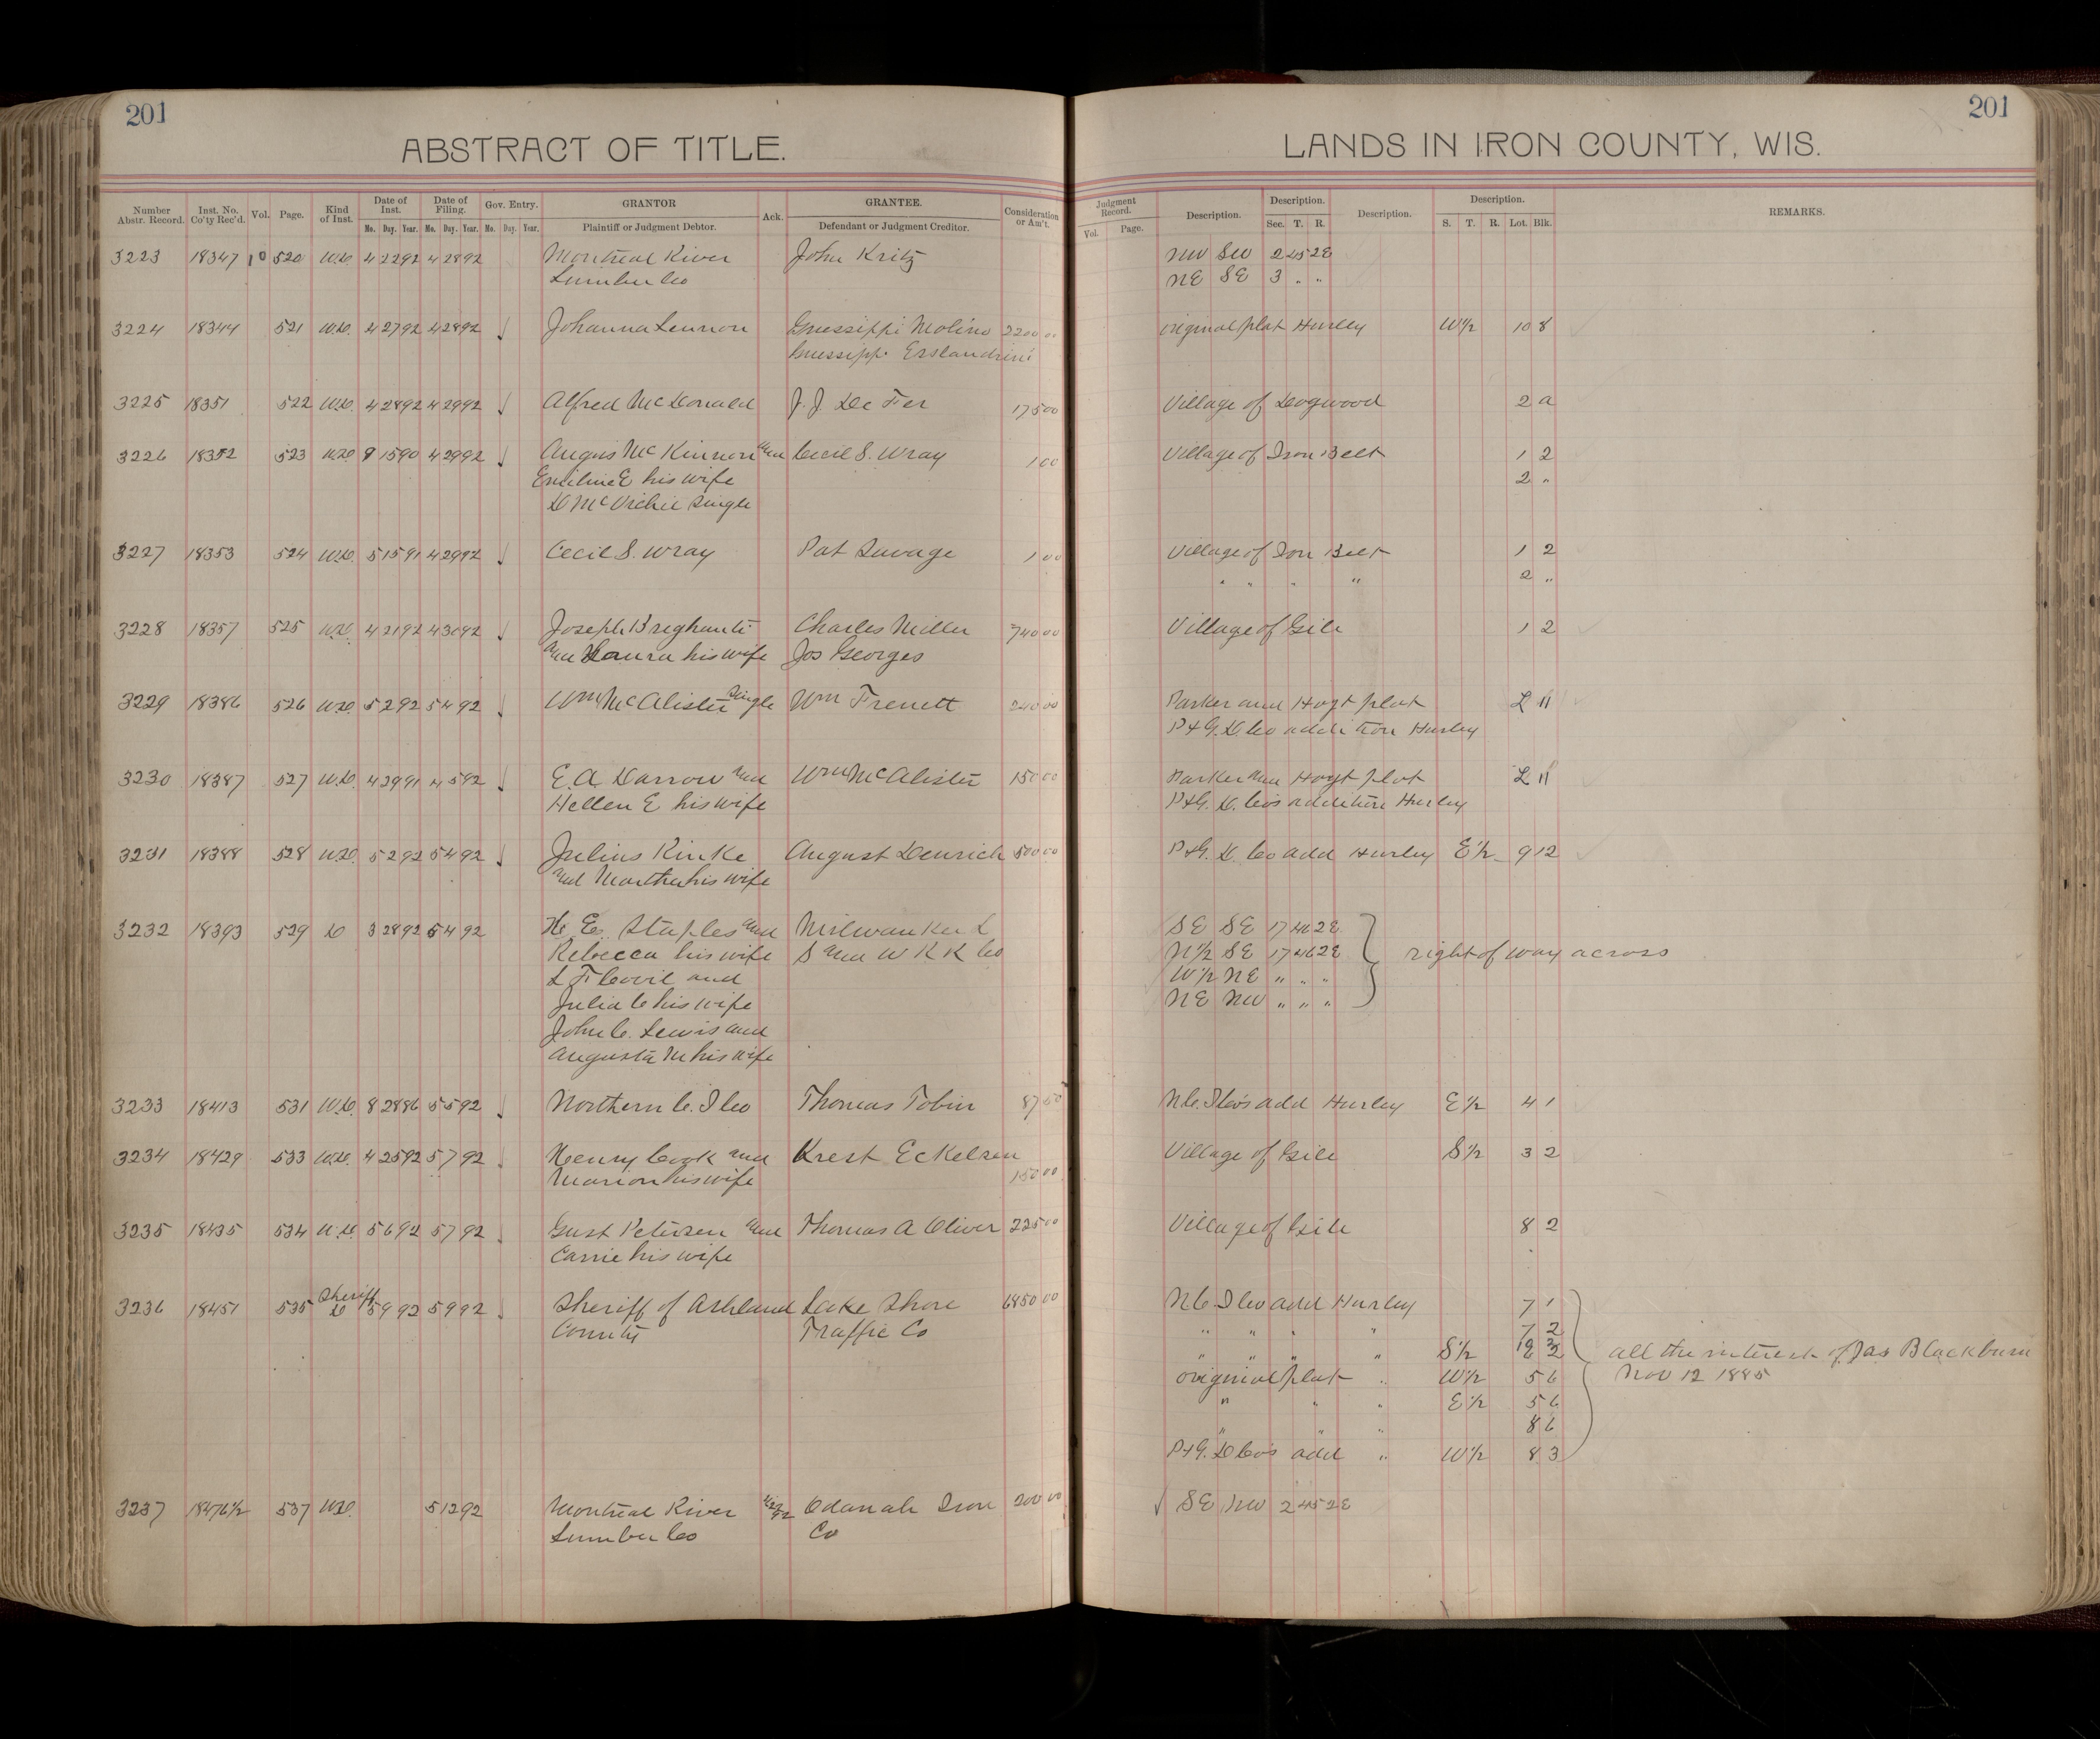 201
201
ABSTRACT OF TITLE.
LANDS IN IRON COUNTY, WIS.
Number Abstr. Record. Inst. No. Co'ty Rec'd. Vol. Page. Kind of Inst. Date of Inst. Mo. Day. Year. Date of Filing. Mo. Day. Year. Gov. Entry. Mo. Day. Year. GRANTOR Plaintiff or Judgment Debtor. Ack. GRANTEE. Defendant or Judgment Creditor. Consideration or Am't. Judgment Record. Vol. Page. Description. Description. Sec. T. R. Description. Description. S. T. R. Lot. Blk. REMARKS.
3223 18347 10 520 W.D. 4 22 92 4 28 92 Montreal River John Kritz NW SW 2 45 2E
Lumber Co NE SE 3 " "
3224 18344 521 W.D. 4 27 92 4 28 92 Johanna Lennon Guessippi Molino 2200 00 original plat Hurley W½ 10 8
Guessippi
3225 18351 522 W.D. 4 28 92 4 29 92 Alfred McDonald J.J. De Fer 175 00 Village of Dogwood 2 a
3226 18352 523 W.D. 8 15 90 4 29 92 Angus McKinnon and Cecil S. Wray 1 00 Village of Iron Belt 1 2
Emiline E his wife 2 "
D McVichie Single
3227 18353 524 W.D. 5 15 91 4 29 92 Cecil S. Wray Pat Savage 1 00 Village of Iron Belt 1 2
" " " " 2 "
3228 18357 525 W.D. 4 21 92 4 30 92 Joseph Breghanti Charles Miller 740 00 Village of Gile 1 2
and Laura his wife Jos Georges
3229 18386 526 W.D. 5 2 92 5 4 92 Wm McAlister Single Wm Frenett 240 00 Parker and Hoyt plat L 11
P & G. D. Co addition Hurley
3230 18387 527 W.D. 4 29 91 4 5 92 E.A. Darrow and Wm McAlister 150 00 Parker and Hoyt plat L 11
Hellen E his wife P & G. D. Co's addition Hurley
3231 18388 528 W.D. 5 2 92 5 4 92 Julius Kinke August Denrich 500 00 P & G. D. Co add Hurley E½ 9 12
and Martha his wife
3232 18393 529 D 3 28 92 5 4 92 H. E. Staples and Milwaukee L SE SE 17 46 2E
Rebecca his wife S and W R R Co N½ SE 17 46 2E right of way across
L F Covil and W½ NE " " "
Julia C his wife NE NW " " "
John C. Lewis and
Augusta M his wife
3233 18413 531 W.D. 8 28 86 5 5 92 Northern C. I Co Thomas Tobin 87 50 N.C. I Co's add Hurley E½ 4 1
3234 18429 533 W.D. 4 25 92 5 7 92 Henry Cook and Krest Eckelsen Village of Gile S½ 3 2
Marion his wife 150 00
3235 18435 534 W.D. 5 6 92 5 7 92 Gust Petersen and Thomas A Oliver 225 00 Village of Gile 8 2
Carrie his wife
3236 18451 535 Sheriff D 5 9 92 5 9 92 Sheriff of Ashland Lake Shore 6850 00 N.C. I Co add Hurley 7 1
County Traffic Co " " " " 7 2
" " " " S½ 2 all the interest of Jas Blackburn
original plat " W½ 5 6 Nov 12 1885
" " " E½ 5 6
" " " 8 6
P & G. D Co's add " W½ 8 3
3237 18476½ 537 W.D. 5 12 92 Montreal River Odanah Iron 200 00 SE NW 2 45 2E
Lumber Co Co